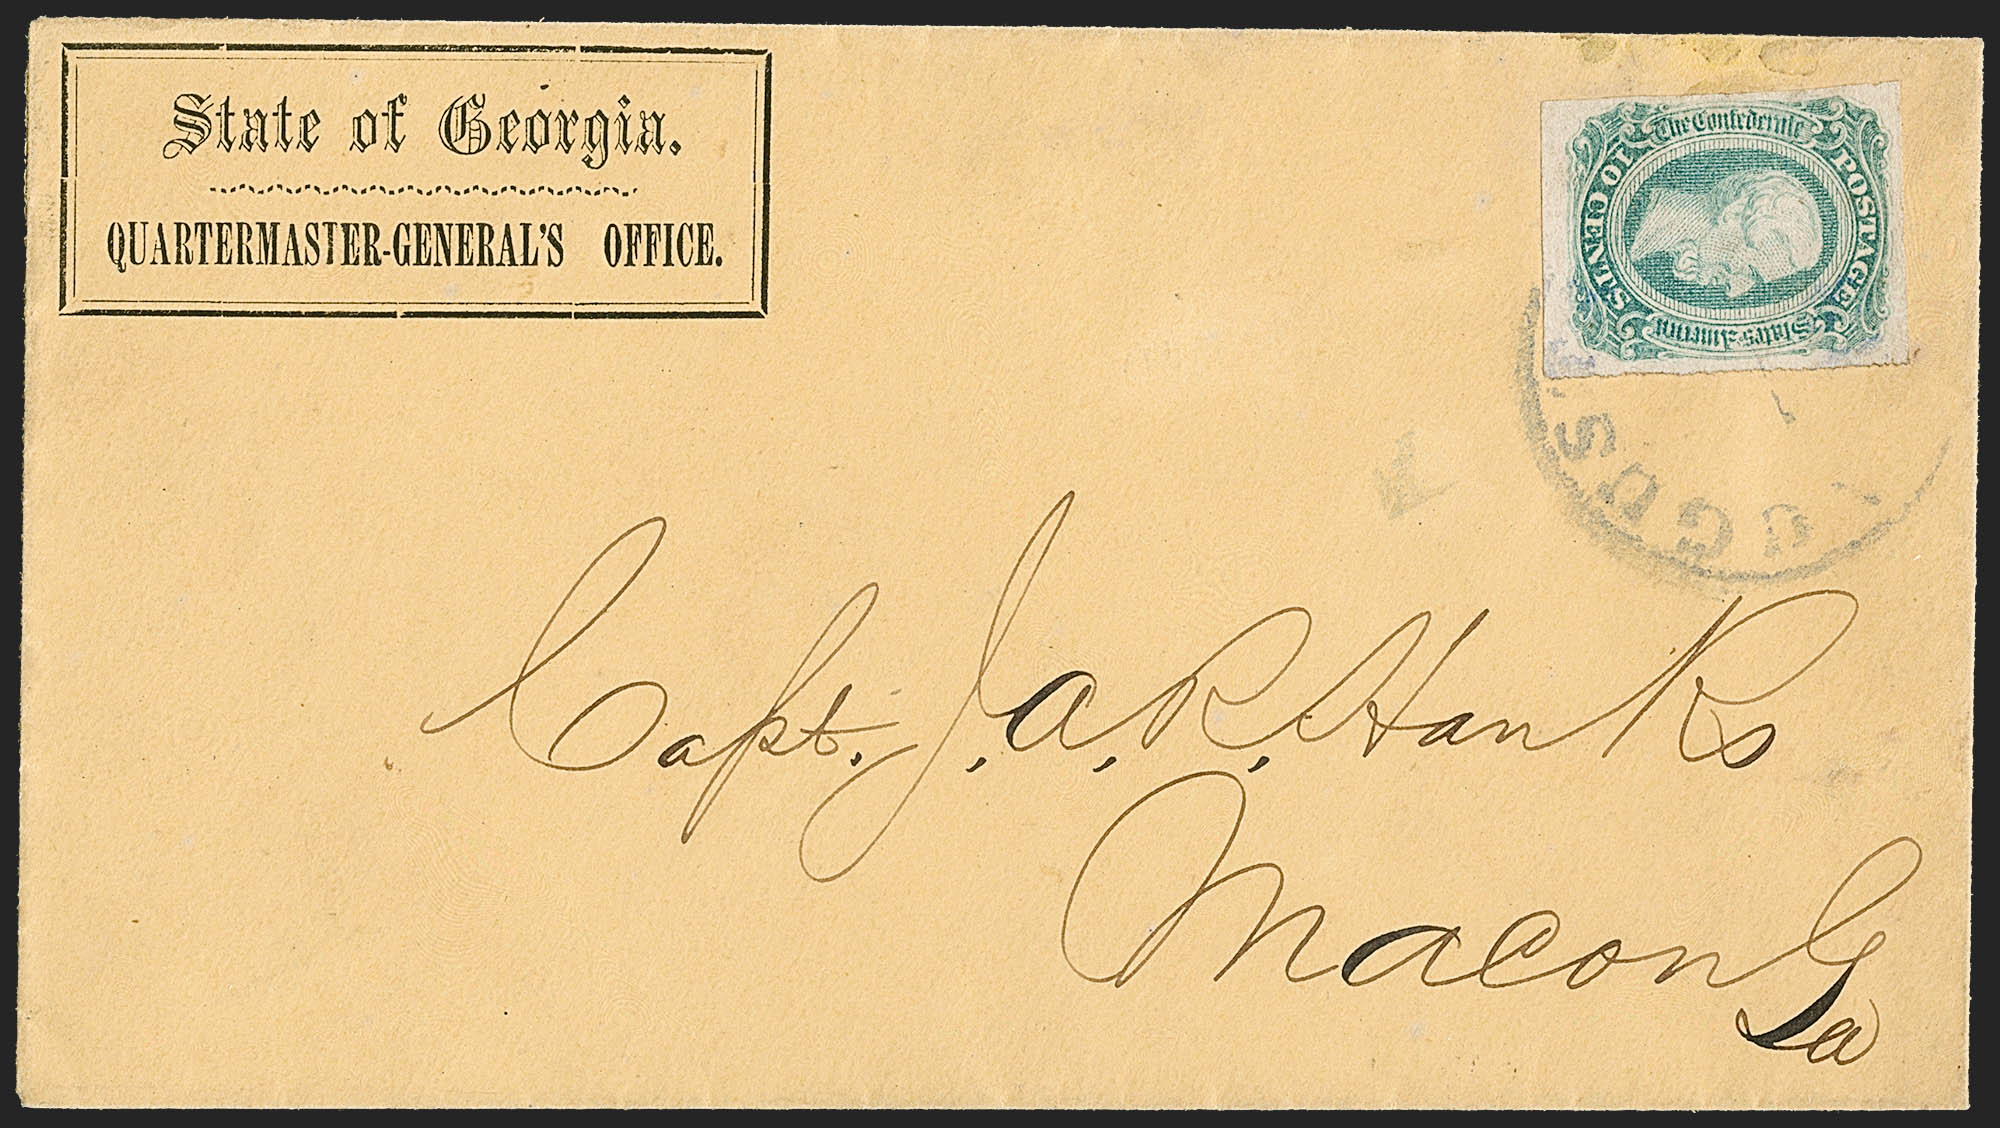 State of Georgia.
QUARTERMASTER-GENERAL'S OFFICE.
The Confederate
States America
POSTAGE
10 CENTS
Capt. J. A. R. Hanks
Macon
Ga